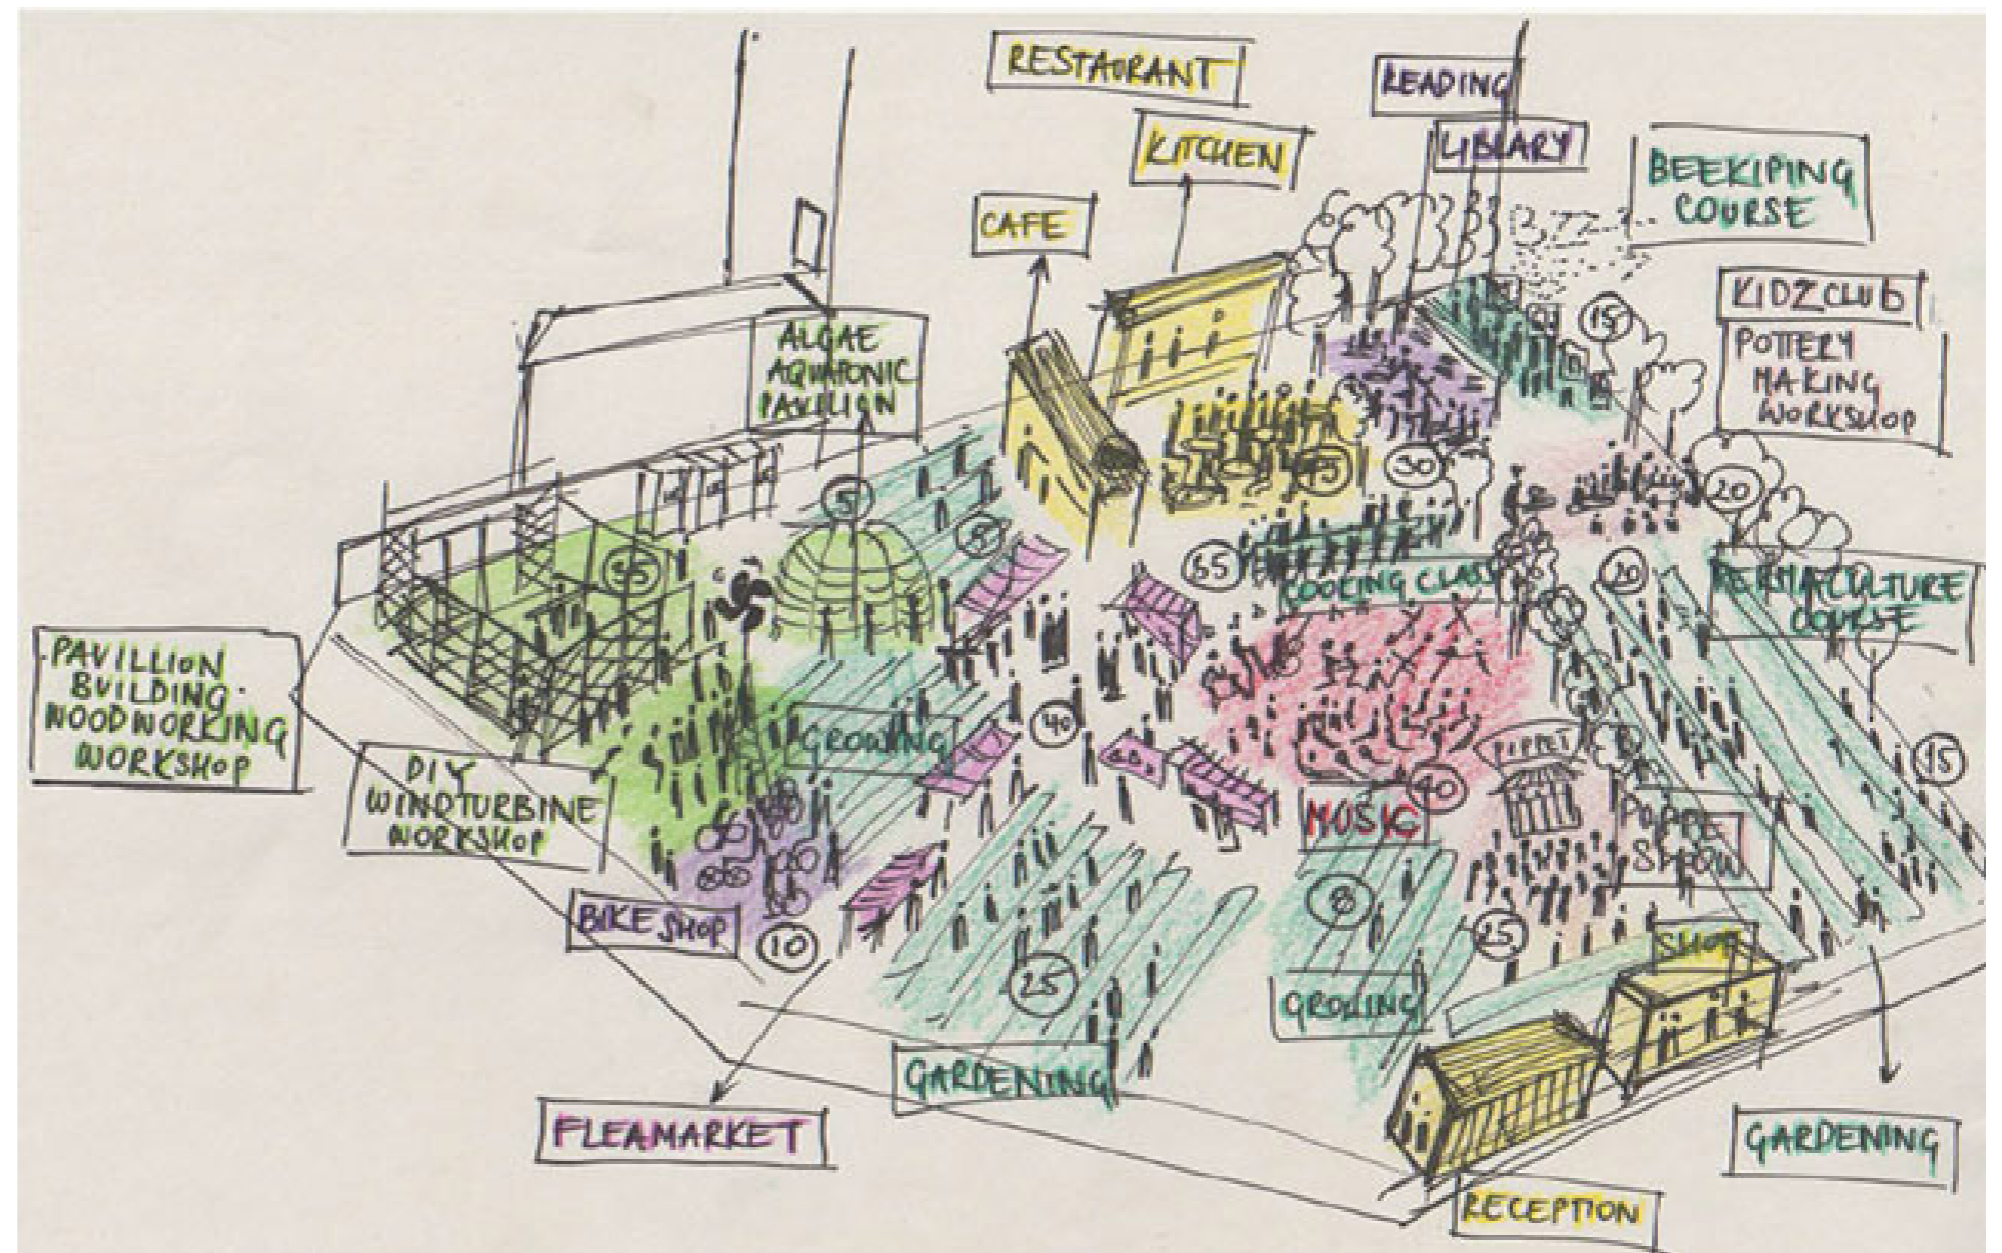 RESTAURANT
READING
KITCHEN
LIBRARY
BEEKIPING
COURSE
CAFE
BZZZ
KIDZCLUB
POTTERY
MAKING
WORKSHOP
ALGAE
AQUAPONIC
PAVILION
15
30
20
5
65
20
COOKING CLASS
PERMACULTURE
COURSE
PAVILLION
BUILDING
WOODWORKING
WORKSHOP
GROWING
40
15
DIY
WINDTURBINE
WORKSHOP
MUSIC
SHOW
8
BIKE SHOP
10
25
25
SHOP
GROWING
GARDENING
FLEAMARKET
GARDENING
RECEPTION